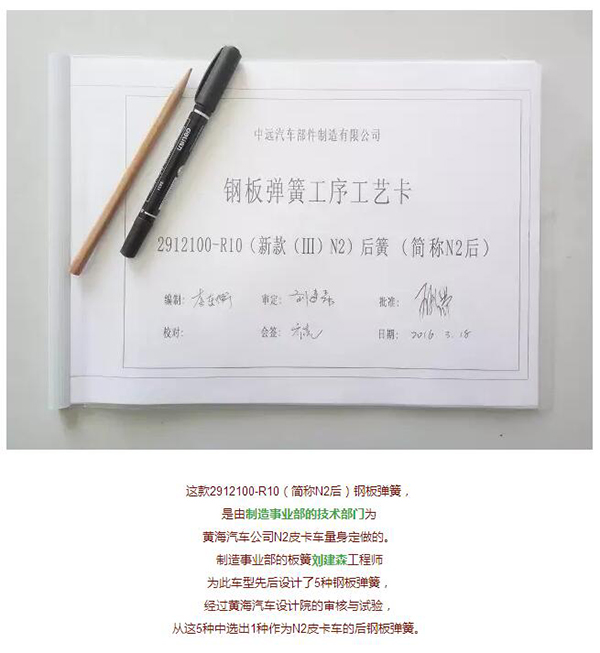 中远汽车部件制造有限公司
钢板弹簧工序工艺卡
2912100-R10（新款（Ⅲ）N2）后簧（简称N2后）
编制： 审定：刘建森 批准：
校对： 会签： 日期：2016 3.18
这款2912100-R10（简称N2后）钢板弹簧，
是由制造事业部的技术部门为
黄海汽车公司N2皮卡车量身定做的。
制造事业部的板簧刘建森工程师
为此车型先后设计了5种钢板弹簧，
经过黄海汽车设计院的审核与试验，
从这5种中选出1种作为N2皮卡车的后钢板弹簧。